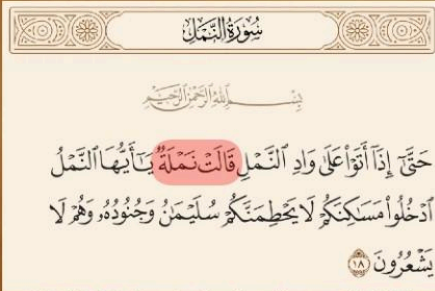 سُورَةُ النَّمْلِ
بِسْمِ اللَّهِ الرَّحْمَٰنِ الرَّحِيمِ
حَتَّىٰٓ إِذَآ أَتَوْاْ عَلَىٰ وَادِ ٱلنَّمْلِ قَالَتْ نَمْلَةٌ يَٰٓأَيُّهَا ٱلنَّمْلُ
ٱدْخُلُواْ مَسَٰكِنَكُمْ لَا يَحْطِمَنَّكُمْ سُلَيْمَٰنُ وَجُنُودُهُۥ وَهُمْ لَا
يَشْعُرُونَ ١٨